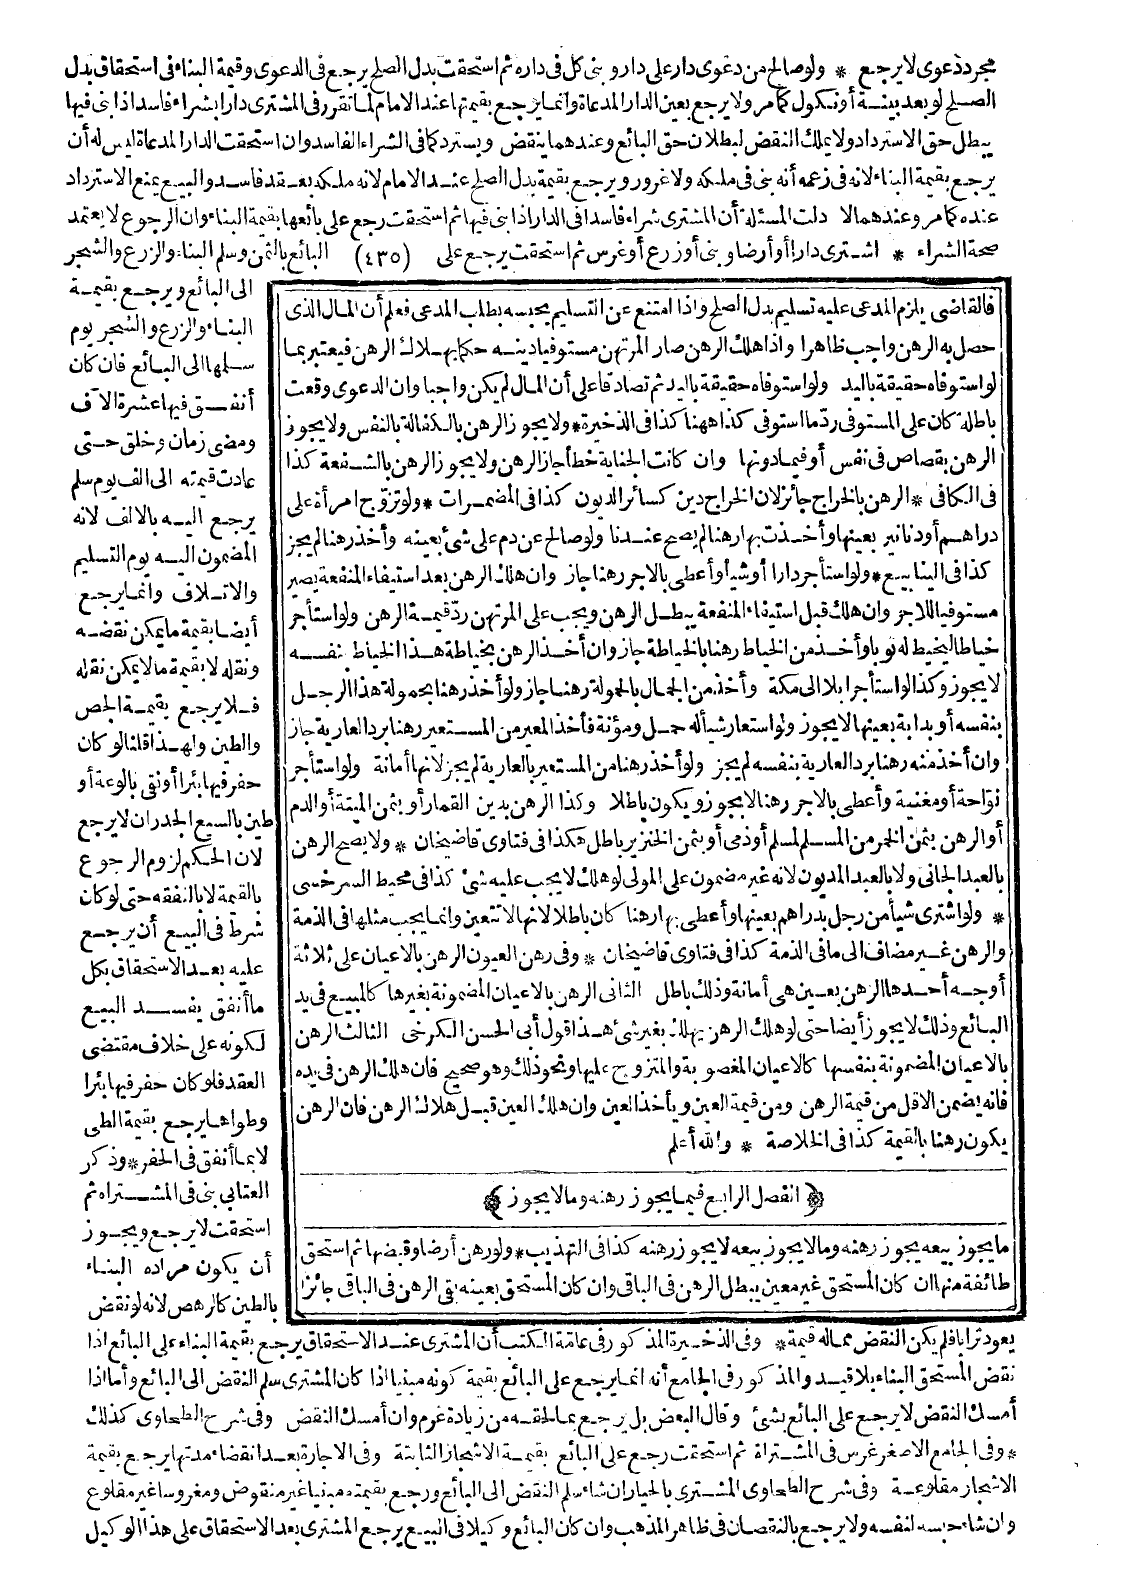 مجرد دعوى لا يرجع * ولو صالح من دعوى دار على دار وبنى كل فى داره ثم استحقت بدل الصلح يرجع فى الدعوى وقيمة البناء فى استحقاق بدل
الصلح لو بعد بينة أو نكول كما مر ولا يرجع بعين الدار المدعاة وانما يرجع بقيمتها عند الامام لما تقرر فى المشترى دارا بشراء فاسد اذا بنى فيها
يبطل حق الاسترداد ولا يملك النقض لبطلان حق البائع وعندهما ينقض ويسترد كما فى الشراء الفاسد وان استحقت الدار المدعاة ليس له أن
يرجع بقيمة البناء لانه فى زعمه أنه بنى فى ملكه ولا غرور ويرجع بقيمة بدل الصلح عند الامام لانه ملكه بعقد فاسد والبيع يمنع الاسترداد
عنده كما مر وعندهما لا دلت المسئلة أن المشترى شراء فاسدا فى الدار اذا بنى فيها ثم استحقت رجع على بائعها بقيمة البناء وان الرجوع لا يعتمد
صحة الشراء * اشترى دارا أو أرضا وبنى أو زرع أو غرس ثم استحقت يرجع على (٤٣٥) البائع بالثمن وسلم البناء والزرع والشجر
الى البائع ويرجع بقيمة
البناء والزرع والشجر يوم
سلمها الى البائع فان كان
أنفق فيها عشرة الآف
ومضى زمان وخلق حتى
عادت قيمته الى الف يوم سلم
يرجع اليه بالالف لانه
المضمون اليه يوم التسليم
والاتلاف وانما يرجع
أيضا بقيمة ما يمكن نقضه
ونقله لا بقيمة ما لا يمكن نقله
فلا يرجع بقيمة الجص
والطين ولهذا قلنا لو كان
حفر فيها بئرا أو نقى بالوعة أو
طين بالسيع الجدران لا يرجع
لان الحكم لزوم الرجوع
بالقيمة لا بالنفقة حتى لو كان
شرط فى البيع أن يرجع
عليه بعد الاستحقاق بكل
ما أنفق يفسد البيع
لكونه على خلاف مقتضى
العقد فلو كان حفر فيها بئرا
وطواها يرجع بقيمة الطى
لا بما أنفق فى الحفر * وذكر
العتابى بنى فى المشتراه ثم
استحقت لا يرجع ويجوز
أن يكون مراده البناء
بالطين كالرهص لانه لو نقض
فالقاضى يلزم المدعى عليه تسليم بدل الصلح واذا امتنع عن التسليم يحبسه بطلب المدعى فعلم أن المال الذى
حصل به الرهن واجب ظاهرا واذا هلك الرهن صار المرتهن مستوفيا دينه حكما بهلاك الرهن فيعتبر بما
لو استوفاه حقيقة باليد ولو استوفاه حقيقة باليد ثم تصادقا على أن المال لم يكن واجبا وان الدعوى وقعت
باطلة كان على المستوفى رد ما استوفى كذا ههنا كذا فى الذخيرة * ولا يجوز الرهن بالكفالة بالنفس ولا يجوز
الرهن بقصاص فى نفس أو فيما دونها وان كانت الجناية خطأ جاز الرهن ولا يجوز الرهن بالشفعة كذا
فى الكافى * الرهن بالخراج جائز لان الخراج دين كسائر الديون كذا فى المضمرات * ولو تزوج امرأة على
دراهم أو دنانير بعينها وأخذت بها رهنا لم يصح عندنا ولو صالح عن دم على شئ بعينه وأخذ رهنا لم يجز
كذا فى الينابيع * ولو استأجر دارا أو شيأ وأعطى بالاجر رهنا جاز وان هلك الرهن بعد استيفاء المنفعة يصير
مستوفيا للاجر وان هلك قبل استيفاء المنفعة يبطل الرهن ويجب على المرتهن رد قيمة الرهن ولو استأجر
خياطا ليخيط له ثوبا وأخذ من الخياط رهنا بالخياطة جاز وان أخذ الرهن بخياطة هذا الخياط بنفسه
لا يجوز وكذا لو استأجر ابلا الى مكة وأخذ من الجمال بالحمولة رهنا جاز ولو أخذ رهنا بحمولة هذا الرجل
بنفسه أو بدابة بعينها لا يجوز ولو استعار شيأ له حمل ومؤنة فأخذ المعير من المستعير رهنا برد العارية جاز
وان أخذ منه رهنا برد العارية بنفسه لم يجز ولو أخذ رهنا من المستعير بالعارية لم يجز لانها أمانة ولو استأجر
نواحة أو مغنية وأعطى بالاجر رهنا لا يجوز ويكون باطلا وكذا الرهن بدين القمار أو بثمن الميتة أو الدم
أو الرهن بثمن الخمر من المسلم لمسلم أو ذمى أو بثمن الخنزير باطل هكذا فى فتاوى قاضيخان * ولا يصح الرهن
بالعبد الجانى ولا بالعبد المديون لانه غير مضمون على المولى لو هلك لا يجب عليه شئ كذا فى محيط السرخسى
* ولو اشترى شيأ من رجل بدراهم بعينها وأعطى بها رهنا كان باطلا لانها لا تتعين وانما يجب مثلها فى الذمة
والرهن غير مضاف الى ما فى الذمة كذا فى فتاوى قاضيخان * وفى رهن العيون الرهن بالاعيان على ثلاثة
أوجه أحدها الرهن بعين هى أمانة وذلك باطل الثانى الرهن بالاعيان المضمونة بغيرها كالمبيع فى يد
البائع وذلك لا يجوز أيضا حتى لو هلك الرهن يهلك بغير شئ هذا قول أبى الحسن الكرخى الثالث الرهن
بالاعيان المضمونة بنفسها كالاعيان المغصوبة والمتزوج عليها ونحو ذلك وهو صحيح فان هلك الرهن فى يده
فانه يضمن الاقل من قيمة الرهن ومن قيمة العين ويأخذ العين وان هلك العين قبل هلاك الرهن فان الرهن
يكون رهنا بالقيمة كذا فى الخلاصة * والله أعلم
﴿الفصل الرابع فيما يجوز رهنه وما لا يجوز﴾
ما يجوز بيعه يجوز رهنه وما لا يجوز بيعه لا يجوز رهنه كذا فى التهذيب * ولو رهن أرضا وقبضها ثم استحق
طائفة منها ان كان المستحق غير معين يبطل الرهن فى الباقى وان كان المستحق بعينه بقى الرهن فى الباقى جائزا
يعود ترابا فلم يكن النقض مما له قيمة * وفى الذخيرة المذكور فى عامة الكتب أن المشترى عند الاستحقاق يرجع بقيمة البناء على البائع اذا
نقض المستحق البناء بلا قيد والمذكور فى الجامع أنه انما يرجع على البائع بقيمة كونه مبنيا اذا كان المشترى سلم النقض الى البائع وأما اذا
أمسك النقض لا يرجع على البائع بشئ وقال البعض بل يرجع بما لحقه من زيادة غرم وان أمسك النقض وفى شرح الطحاوى كذلك
* وفى الجامع الاصغر غرس فى المشتراة ثم استحقت رجع على البائع بقيمة الاشجار الثابتة وفى الاجارة بعد انقضاء مدتها يرجع بقيمة
الاشجار مقلوعة وفى شرح الطحاوى المشترى بالخيار ان شاء سلم النقض الى البائع ورجع بقيمته مبنيا غير منقوض ومغروسا غير مقلوع
وان شاء حبسه لنفسه ولا يرجع بالنقصان فى ظاهر المذهب وان كان البائع وكيلا فى البيع يرجع المشترى بعد الاستحقاق على هذا الوكيل